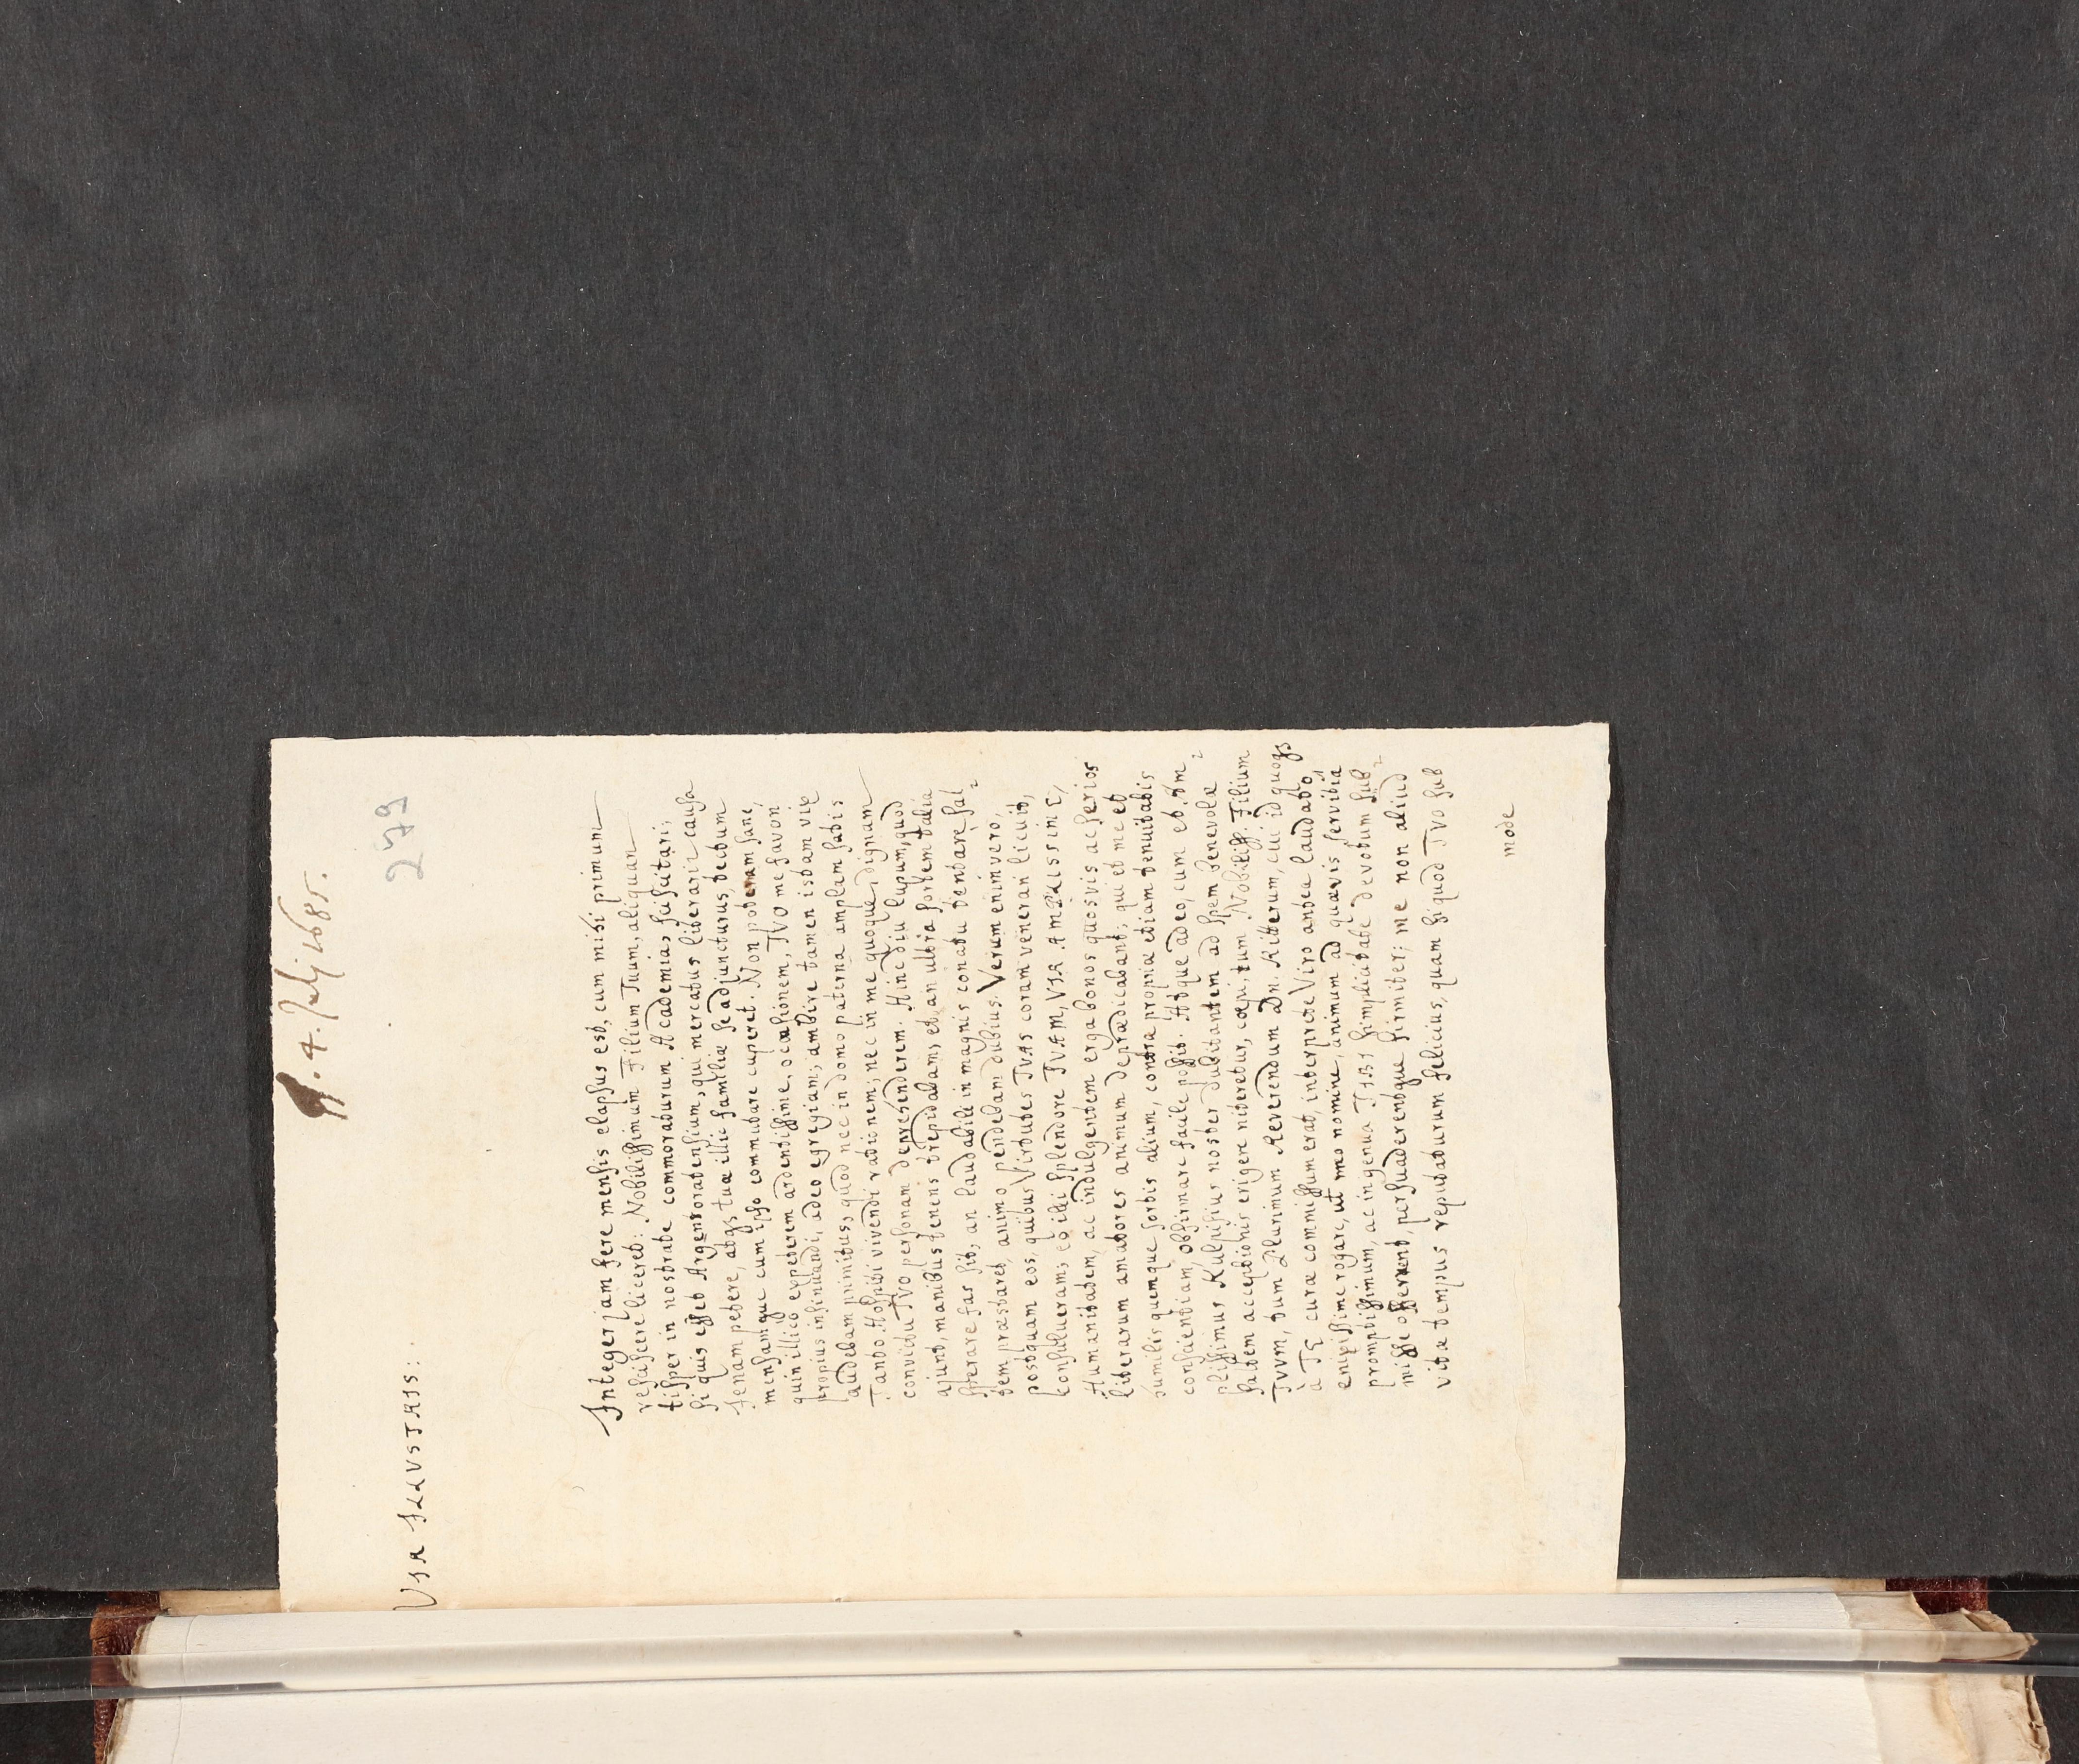 4. Julj 1685.
279
VIR ILLVSTRIS:
Integer jam fere mensis elapsus est, cum mihi primum
resciscere liceret: Nobilissimum Filium Tuum, aliquan
tisper in nostrate commoraturum Academia, sciscitari;
si quis esset Argentoratensium, qui mercatus literarii causa
Jenam petere, atqs tuæ illic familiæ se adjuncturus, tectum
mensamque cum ipso commutare cuperet. Non poteram sane,
quin illico expeterem ardentissime, occasionem, TVO me favori
propius insinuandi, adeo egregiam; ambire tamen istam vix
audebam primitus, quod nec in domo paterna amplam satis
Tanto Hospiti vivendi rationem; nec in me quoque, dignam
convictu TVO personam deprehenderem. Hinc diu lupum, quod
ajunt, manibus tenens trepidabam, et, an ultra sortem talia
sperare fas sit, an laudabile in magnis conatu tentare sal-
tem præstaret, animo pendebam dubius. Verum enimvero,
postquam eos, quibus Virtutes TVAS coram venerari licuit,
consulueram; eo illi splendore TVAM, VIR AMPLISSIME,
Humanitatem, ac indulgentem erga bonos quosvis ac serios
literarum amatores animum deprædicabant; qui et me et
humilis quemque sortis alium, contra propriæ etiam tenuitatis
conscientiam, obfirmare facile possit. Atque adeo, cum et Am-
plissimus Kulpisius noster dubitantem ad spem benevolæ
saltem acceptionis erigere niteretur, cœpi, tum Nobiliss. Filium
TVVM, tum Plurimum Reverendum Dn. Ritterum, cui id quoqs
à TE curæ commissum erat, interprete Viro antea laudato,
enixissime rogare, ut meo nomine, animum ad quævis servitia
promptissimum, ac ingenua TIBI simplicitate devotum sub-
misse offerrent, persuaderentque firmiter; me non aliud
vitæ tempus reputaturum felicius, quam si quod TVO sub
mode